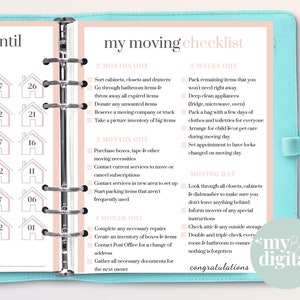 ntil
27
26
22
21
17
16
12
11
07
06
02
01
my moving checklist
3 MONTHS OUT
Sort cabinets, closets and drawers
Go through bathroom items &
throw away all expired items
Donate any unwanted items
Reserve a moving company or truck
Take a picture inventory of big items
2 MONTHS OUT
Purchase boxes, tape & other
moving necessities
Contact current services to move or
cancel subscriptions
Contact services in new area to set up
Start packing items that aren't
frequently used
1 MONTH OUT
Complete any necessary repairs
Create an inventory of boxes & items
Contact Post Office for a change of
address
Gather all necessary documents for
the next owner
2 WEEKS OUT
Pack remaining items that you
won't need right away
Deep clean appliances
(fridge, microwave, oven)
Pack a bag with a few days of
clothes and toiletries for everyone
Arrange for child &/or pet care
during moving day
Set appointment to have locks
changed on moving day
MOVING DAY
Look through all closets, cabinets
& dishwasher to make sure you
don't leave anything behind
Inform movers of any special
instructions
Check attic & any outside storag
Double and triple check every
room & bathroom to ensure
nothing is forgotten
congratulations
my
digita